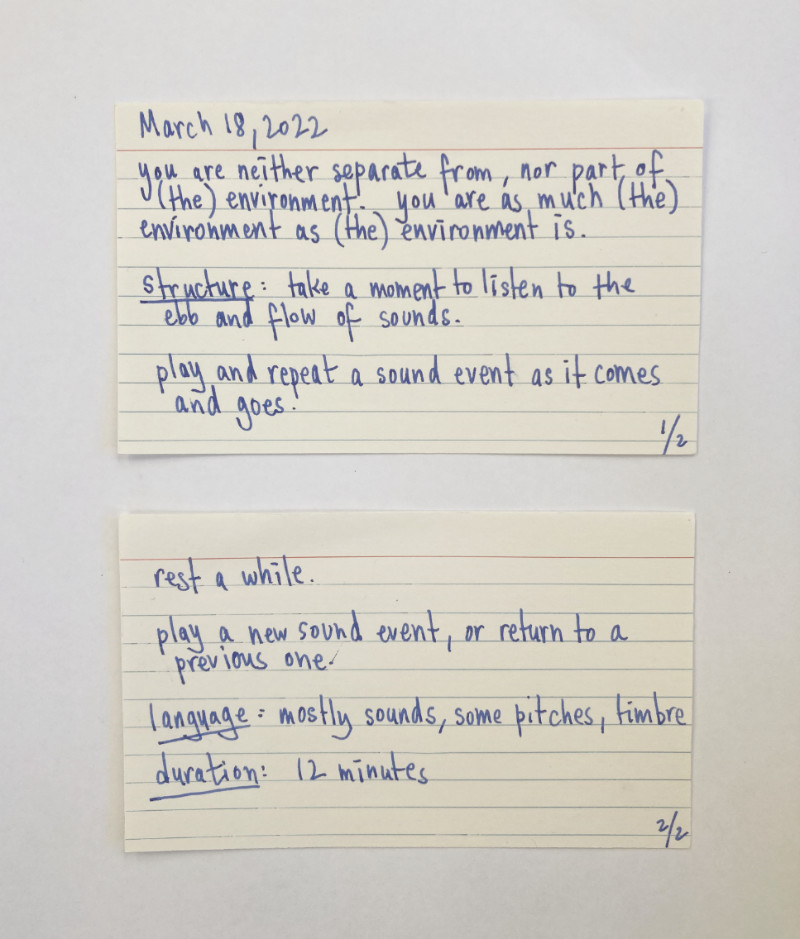 March 18, 2022
you are neither separate from, nor part of
(the) environment. you are as much (the)
environment as (the) environment is.
structure: take a moment to listen to the
ebb and flow of sounds.
play and repeat a sound event as it comes
and goes.
1/2
rest a while.
play a new sound event, or return to a
previous one.
language: mostly sounds, some pitches, timbre
duration: 12 minutes
2/2